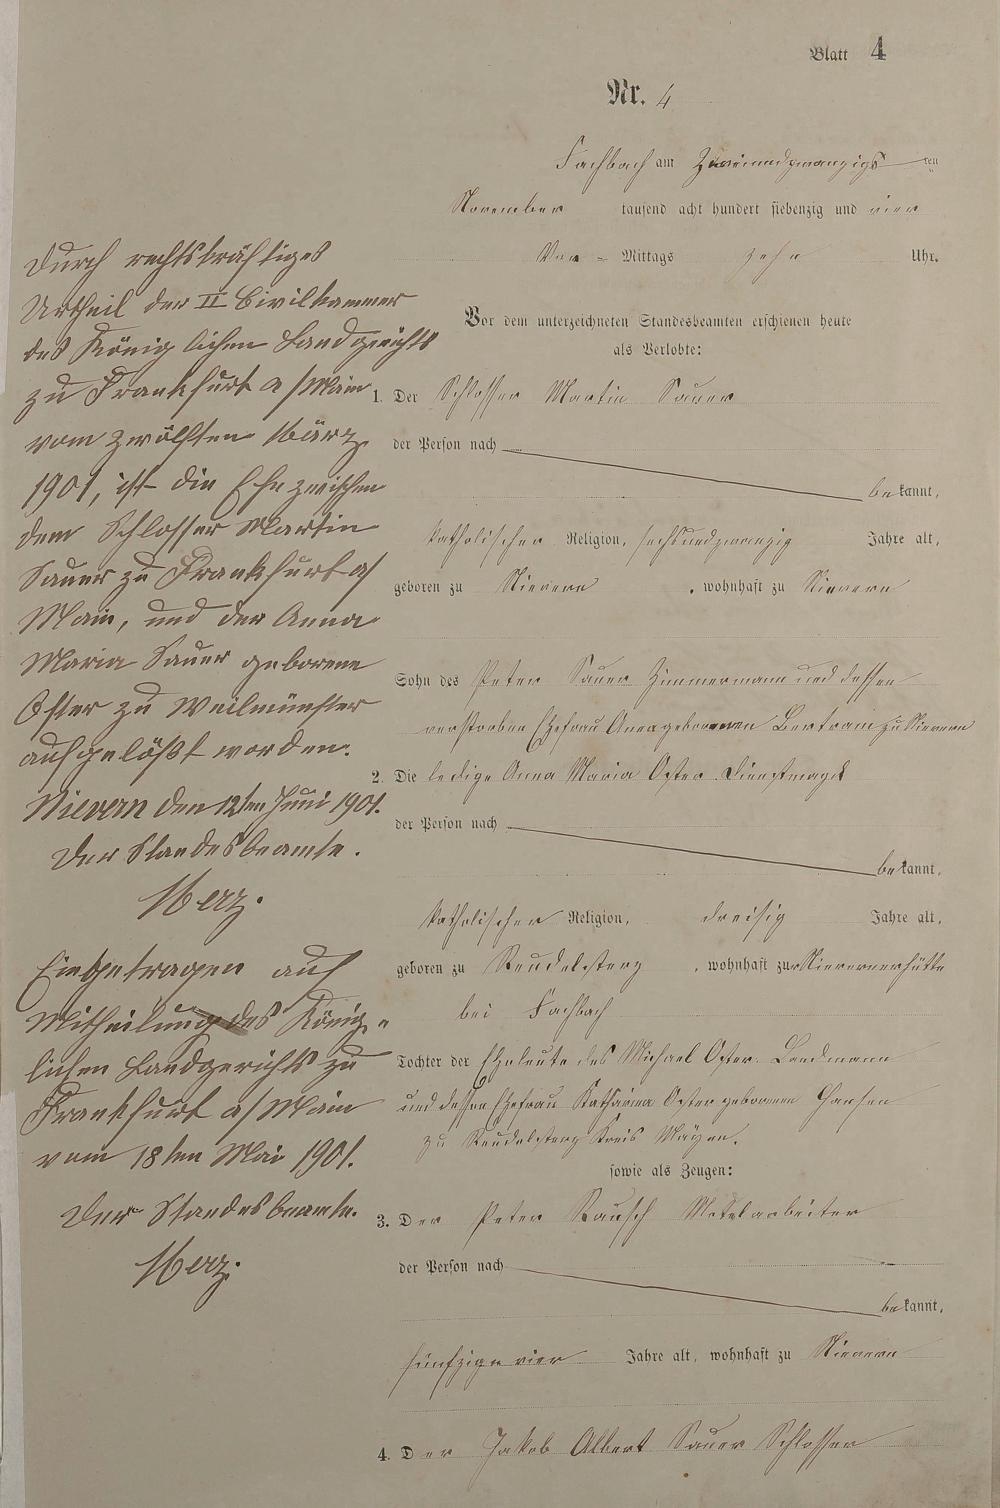 Blatt 4
Nr. 4
Fachbach am Zweiundzwanzigsten
November tausend acht hundert siebenzig und vier
Vor-Mittags zehn Uhr.
Vor dem unterzeichneten Standesbeamten erschienen heute
als Verlobte:
1. Der Schlosser Martin Sauer
der Person nach
bekannt,
katholischer Religion, sechsundzwanzig Jahre alt,
geboren zu Nievern, wohnhaft zu Nievern
Sohn des Peter Sauer Zimmermann und dessen
verstorben Ehefrau Anna geborenen Bertram zu Nievern
2. Die ledige Anna Maria Oster Dienstmagd
der Person nach
bekannt,
katholischer Religion, dreisig Jahre alt,
geboren zu, wohnhaft zur Nievernerhütte
bei Fachbach
Tochter der Eheleute des Michael Oster Landmann
und dessen Ehefrau Katharina Oster geborenen Hansen
zu Kreis Mayen.
sowie als Zeugen:
3. Der Peter Rausch
der Person nach
bekannt,
fünfzig vier Jahre alt, wohnhaft zu Nievern
4. Der Jakob Albert Sauer Schlosser
Durch rechtskräftiges
Urtheil der II Civilkammer
des Königlichen Landgerichts
zu Frankfurt a/Main
vom zwölften März
1901, ist die Ehe zwischen
dem Schlosser Martin
Sauer zu Frankfurt a/
Main, und der Anna
Maria Sauer geborene
Oster zu Weilmünster
aufgelößt worden.
Nievern den 12ten Juni 1901.
Der Standesbeamte.
Merz.
Eingetragen auf
Mittheilung des König-
lichen Landgerichts zu
Frankfurt a/Main
vom 18ten Mai 1901.
Der Standesbeamte.
Merz.